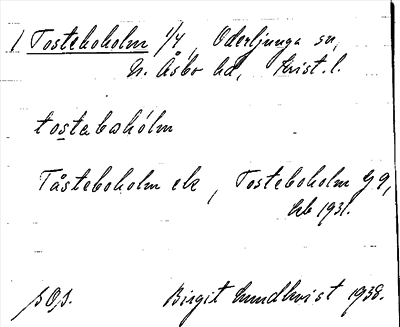 1 Tosteboholm 1/4, Oderljunga sn,
N. Åsbo hd, Krist. l.
tostabahólm
Tåsteboholm ek, Tosteboholm G 9,
hb 1931.
Birgit Lundkvist 1938.